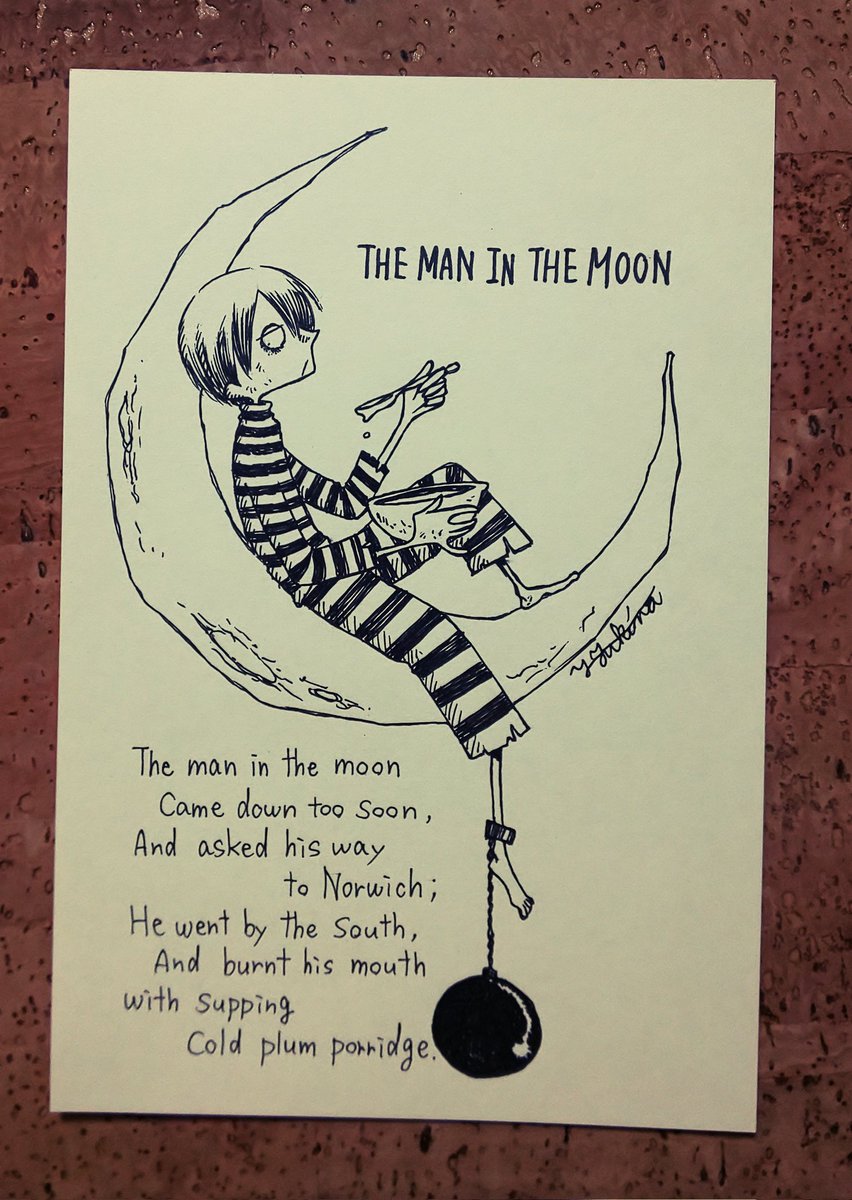 THE MAN IN THE MOON
The man in the moon
Came down too soon,
And asked his way
to Norwich;
He went by the South,
And burnt his mouth
with supping
Cold plum porridge.